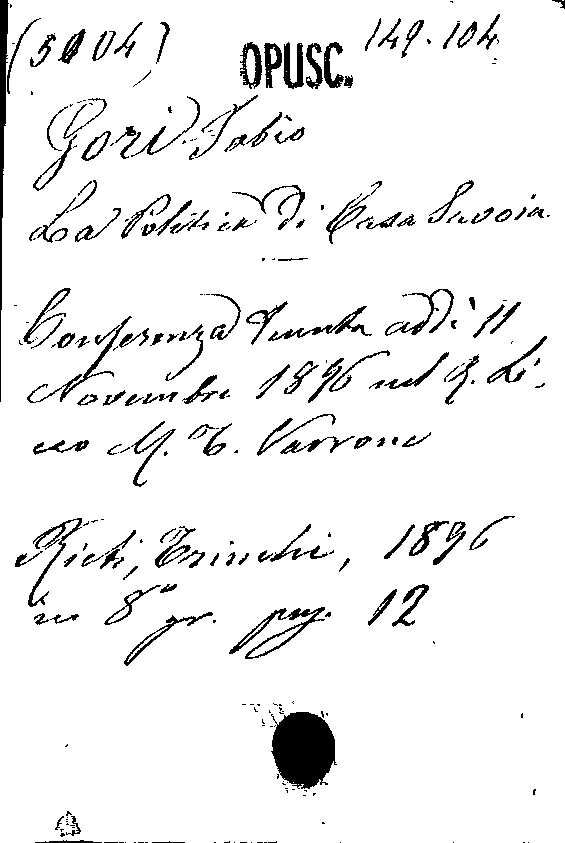 (5904) OPUSC. 149.104
Gori Fabio
La Politica di Casa Savoia
Conferenza tenuta addì 11
Novembre 1896 nel R. Li-
ceo M. T. Varrone
Rieti, Trinchi, 1896
in 8° gr. pag. 12